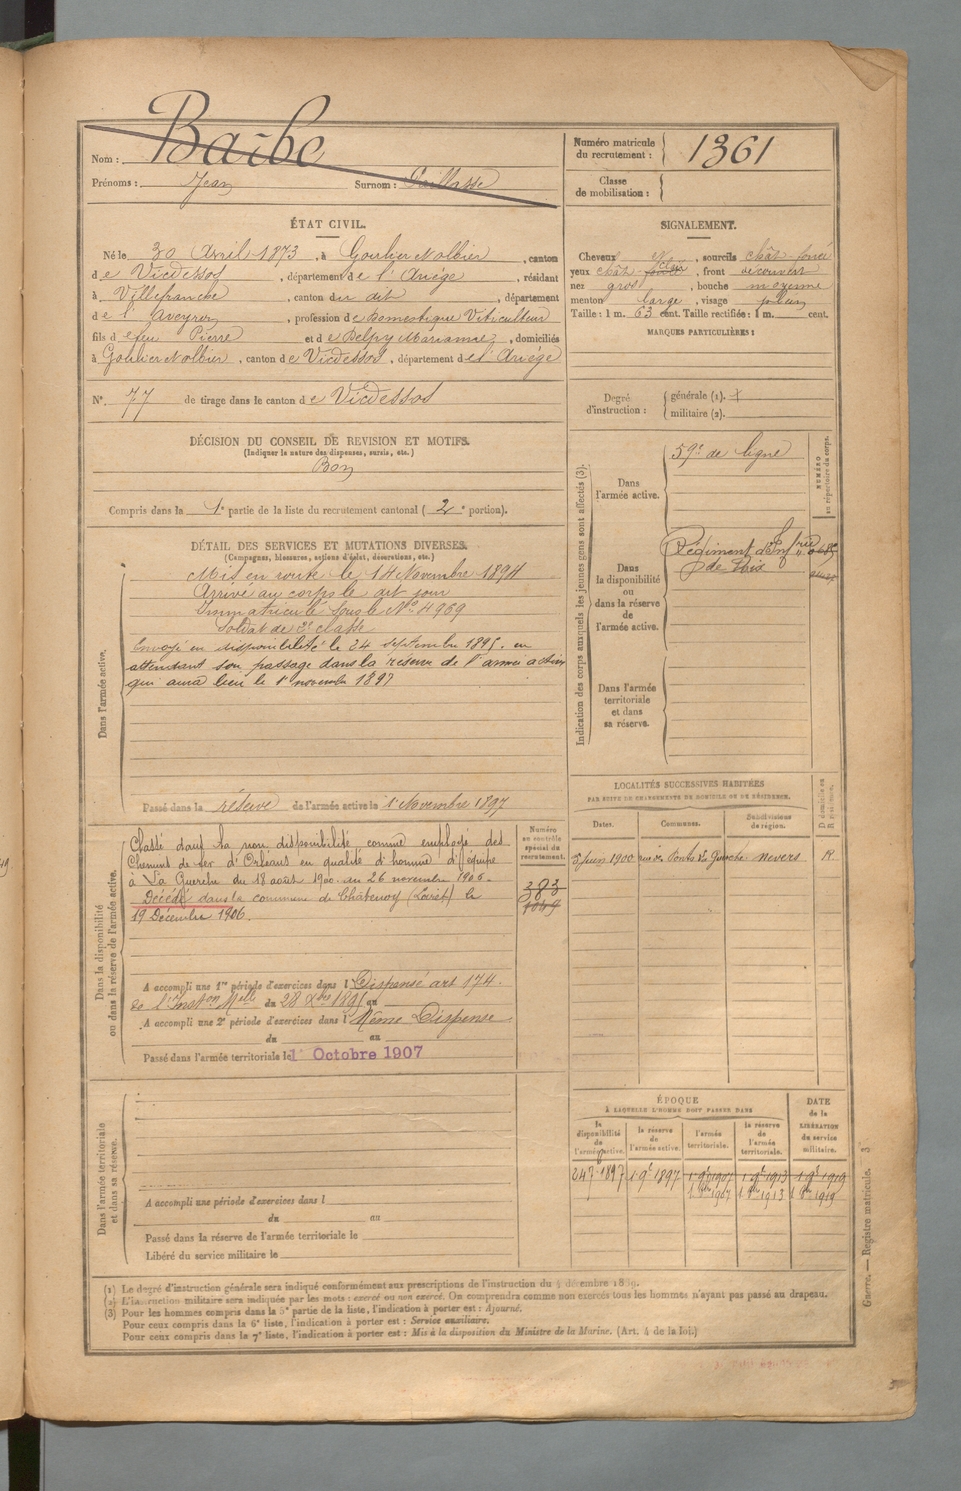 Barbe
Nom :
Prénoms : Jean Surnom : Paillasse
Numéro matricule du recrutement : 1361
Classe de mobilisation :
ÉTAT CIVIL.
Né le 30 Avril 1873, à Goulier et Olbier, canton
de Vicdessos, département de l'Ariége, résidant
à Villefranche, canton du dit, département
de l'Aveyron, profession de Domestique Viticulteur
fils de feu Pierre et de Delpy Marianne, domiciliés
à Goulier et Olbier, canton de Vicdessos, département de l'Ariége
N°. 77 de tirage dans le canton de Vicdessos
DÉCISION DU CONSEIL DE REVISION ET MOTIFS.
(Indiquer la nature des dispenses, sursis, etc.)
Bon
Compris dans la 1e partie de la liste du recrutement cantonal (2e portion).
SIGNALEMENT.
Cheveux et, sourcils chât-foncé
yeux chât-clair, front découvert
nez gros, bouche moyenne
menton large, visage plein
Taille : 1 m. 63 cent. Taille rectifiée : 1 m. cent.
MARQUES PARTICULIÈRES :
Degré d'instruction :
générale (1).
militaire (2).
DÉTAIL DES SERVICES ET MUTATIONS DIVERSES.
(Campagnes, blessures, actions d'éclat, décorations, etc.)
Dans l'armée active.
Mis en route le 14 Novembre 1894
Arrivé au corps le dit jour
Immatriculé sous le N° 4969
Soldat de 2e classe
Envoyé en disponibilité le 24 septembre 1895. en
attendant son passage dans la réserve de l'armée active
qui aura lieu le 1er novembre 1897
Passé dans la réserve de l'armée active le 1er Novembre 1897
Indication des corps auxquels les jeunes gens sont affectés (3).
NUMÉRO au répertoire du corps.
Dans l'armée active.
59e de ligne
Dans la disponibilité ou dans la réserve de l'armée active.
Régiment d'Infrie
de Foix
Dans l'armée territoriale et dans sa réserve.
Dans la disponibilité ou dans la réserve de l'armée active.
Numéro au contrôle spécial du recrutement.
Classé dans la non disponibilité comme employé des
Chemins de fer d'Orléans en qualité d'homme d'équipe
à La Guerche du 18 août 1900 au 26 novembre 1906.
Décédé dans la commune de Châtenoy (Loiret) le
19 Décembre 1906.
383
A accompli une 1re période d'exercices dans l Dispensé art 174.
de l'Inston Melle du 28 Xbre 1895 au
A accompli une 2e période d'exercices dans l Même Dispense
du au
Passé dans l'armée territoriale le 1er Octobre 1907
LOCALITÉS SUCCESSIVES HABITÉES
PAR SUITE DE CHANGEMENTS DE DOMICILE OU DE RÉSIDENCE.
Dates. Communes. Subdivisions de région. D domicile ou R résidence.
5 Juin 1900 La Guerche Nevers R
ÉPOQUE
À LAQUELLE L'HOMME DOIT PASSER DANS
DATE de la LIBÉRATION du service militaire.
la disponibilité de l'armée active. la réserve de l'armée active. l'armée territoriale. la réserve de l'armée territoriale.
1 9bre 1897 1 9bre 1907 1 9bre 1913 1 9bre 1919
1 8bre 1907 1 8bre 1913 1 8bre 1919
Dans l'armée territoriale et dans sa réserve.
A accompli une période d'exercices dans l
du au
Passé dans la réserve de l'armée territoriale le
Libéré du service militaire le
(1) Le degré d'instruction générale sera indiqué conformément aux prescriptions de l'instruction du 4 décembre 1889.
(2) L'instruction militaire sera indiquée par les mots : exercé ou non exercé. On comprendra comme non exercés tous les hommes n'ayant pas passé au drapeau.
(3) Pour les hommes compris dans la 5e partie de la liste, l'indication à porter est : Ajourné.
Pour ceux compris dans la 6e liste, l'indication à porter est : Service auxiliaire.
Pour ceux compris dans la 7e liste, l'indication à porter est : Mis à la disposition du Ministre de la Marine. (Art. 4 de la loi.)
Guerre. — Registre matricule. 3